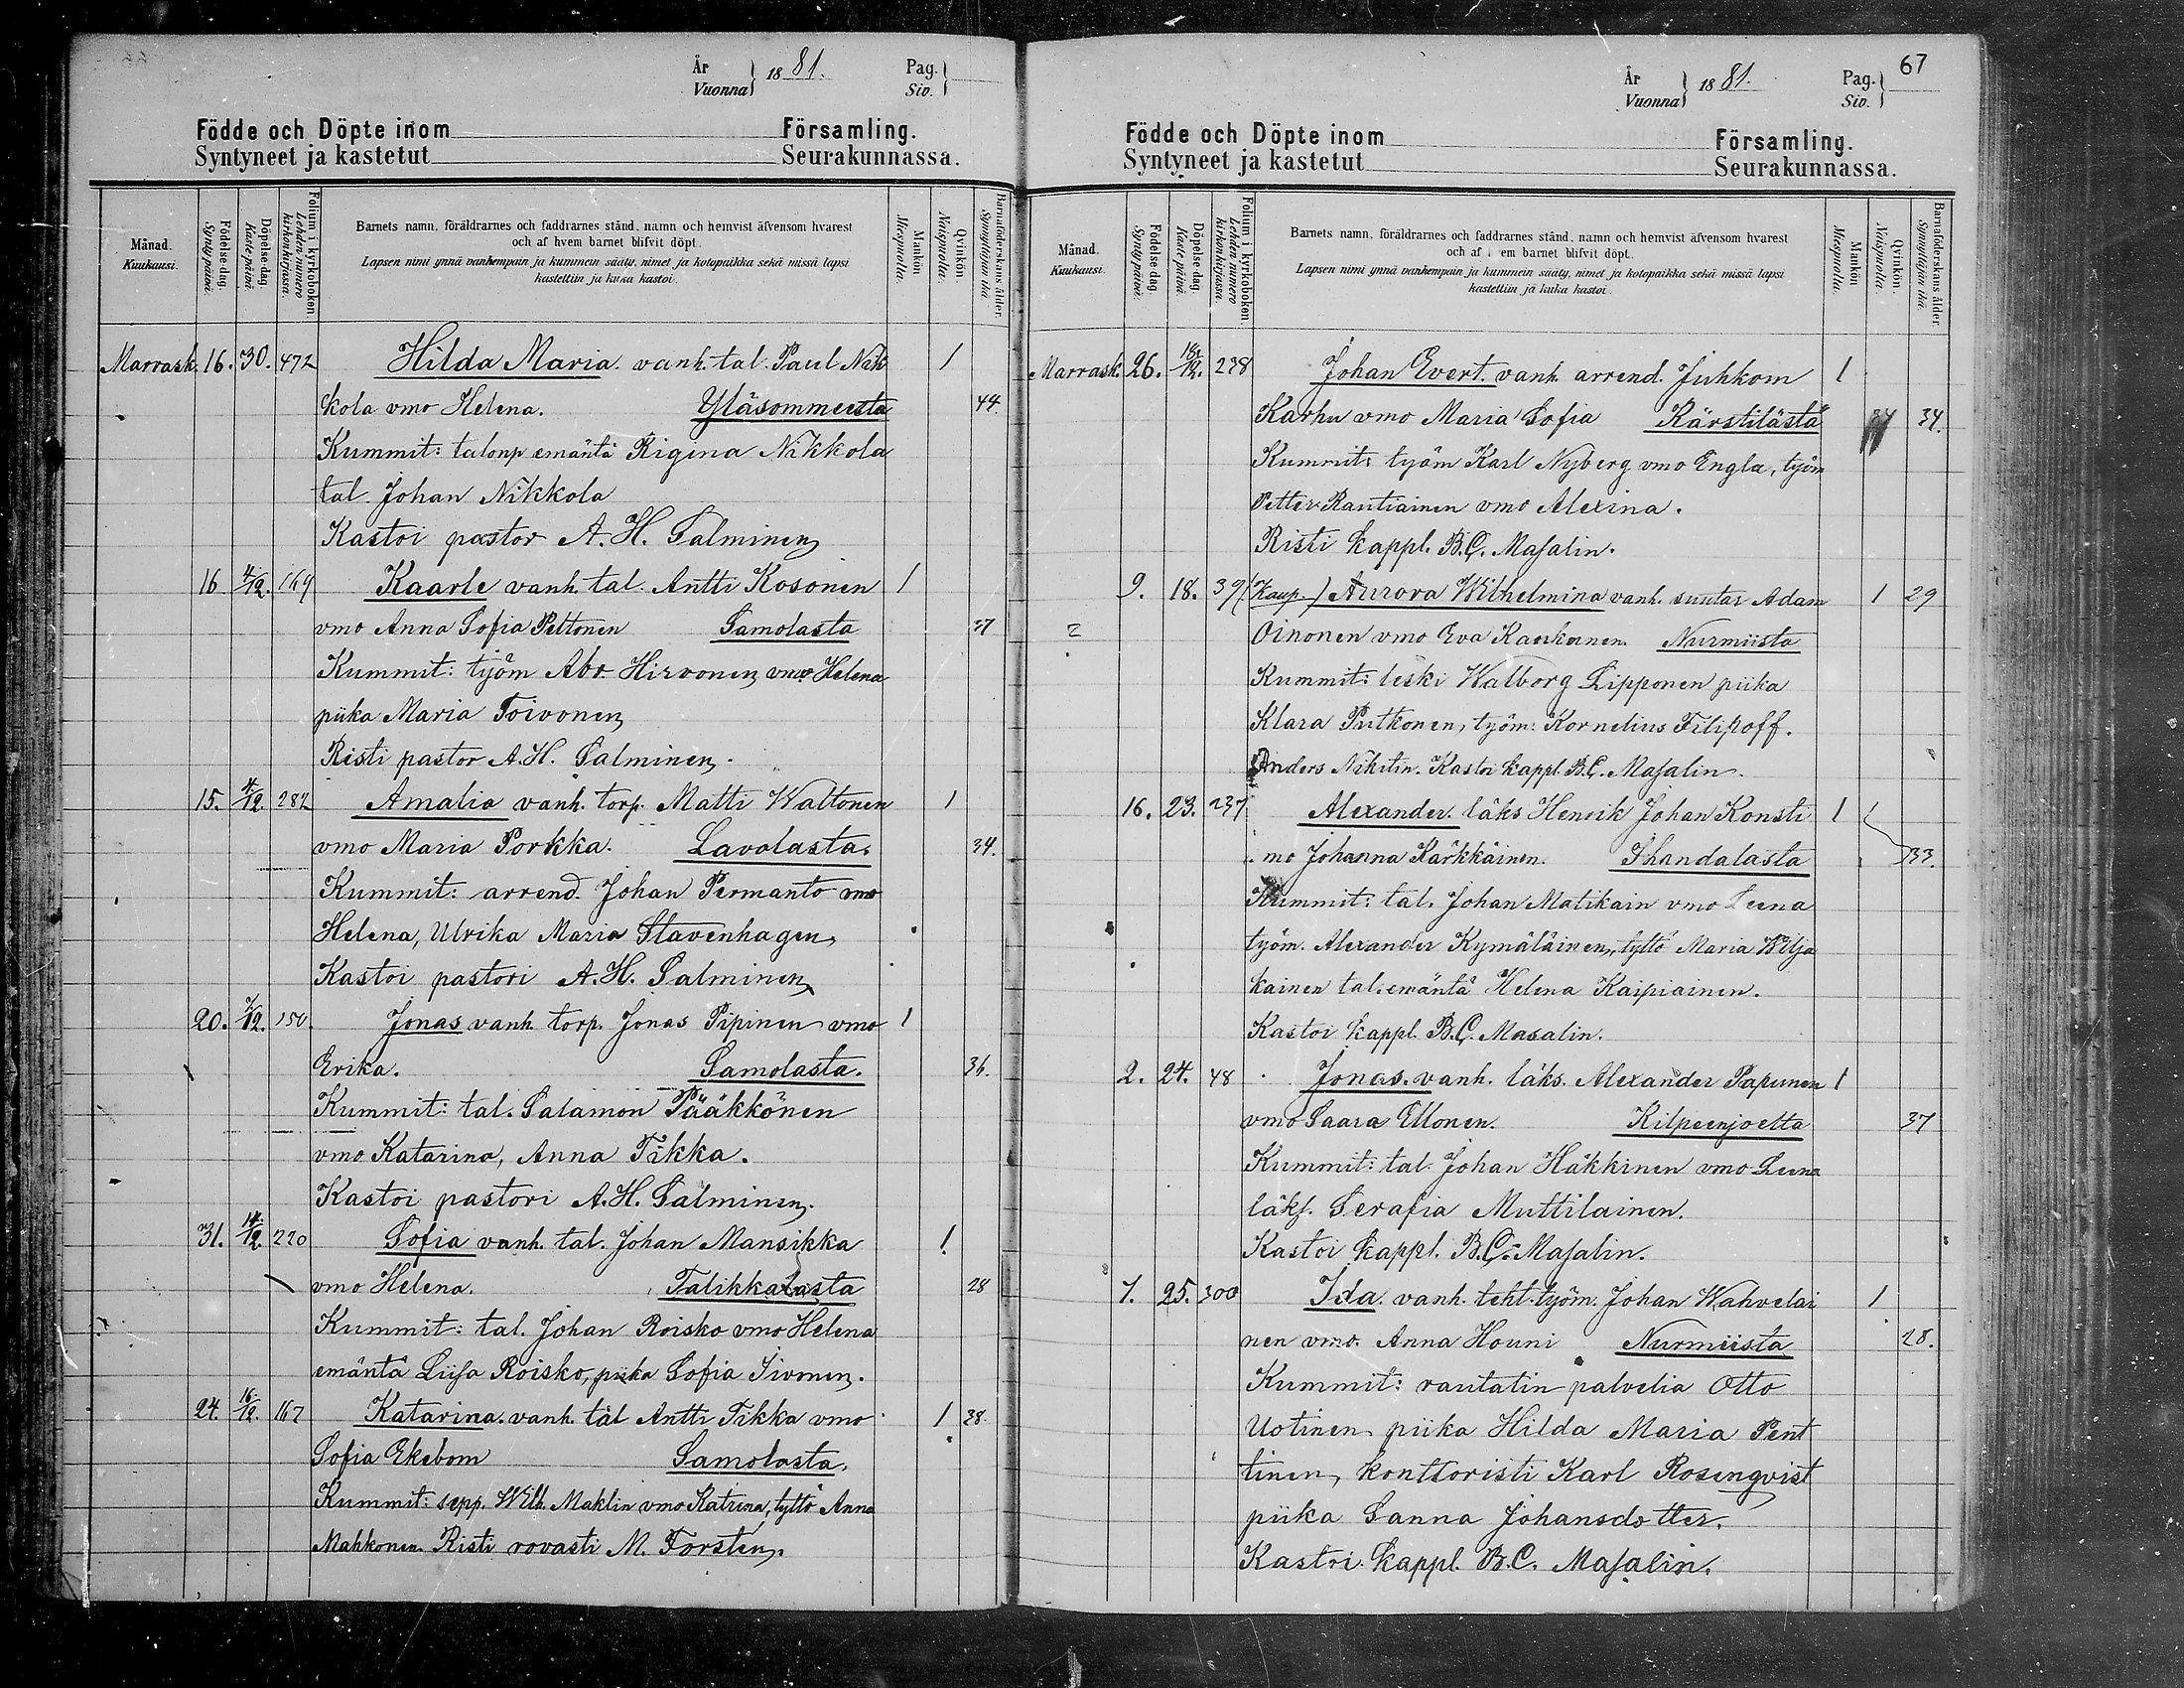 År
Vuonna } 1881.
Pag.
Siv. }
Födde och Döpte inom Församling.
Syntyneet ja kastetut Seurakunnassa.
Månad.
Kuukausi.
Födelse dag.
Synty päivä.
Döpelse dag.
Kaste päivä.
Folium i kyrkoboken.
Lehden numero kirkonkirjassa.
Barnets namn, föräldrarnes och faddrarnes stånd, namn och hemvist äfvensom hvarest
och af hvem barnet blifvit döpt.
Lapsen nimi ynnä vanhempain ja kummein sääty, nimet ja kotopaikka sekä missä lapsi
kastettiin ja kuka kastoi.
Mankön
Miespuolta.
Qvinkön.
Naispuolta.
Barnaföderskans ålder.
Synnyttäjän ikä.
Marrask. 16. 30. 472 Hilda Maria. vanh. tal. Paul Nik 1
kola vmo Helena. Yläsommeesta 44.
Kummit: talonp emäntä Rigina Nikkola
tal. Johan Nikkola
Kastoi pastor A. H. Salminen
16 4/12. 169 Kaarle vanh. tal. Antti Kosonen 1
vmo Anna Sofia Peltonen Samolasta 37
Kummit: työm Abr. Hirvonen vmo Helena
piika Maria Toivonen
Risti pastor A. H. Salminen.
15. 4/12 282 Amalia vanh. torp. Matti Waltonen 1
vmo Maria Porkka. Lavolasta. 34.
Kummit: arrend. Johan Permanto vmo
Helena, Ulrika Maria Stavenhagen
Kastoi pastori A. H. Salminen
20. /12. 150. Jonas vanh. torp. Jonas Pipinen vmo 1
Erika. Samolasta. 36.
Kummit: tal. Salamon Pääkkönen
vmo Katarina, Anna Tikka.
Kastoi pastori A. H. Salminen.
31. 14/12. 220 Sofia vanh. tal. Johan Mansikka 1.
vmo Helena. Talikkalasta 28
Kummit: tal. Johan Roisko vmo Helena
emäntä Liisa Roisko, piika Sofia Sivonen.
24. 16/12. 167 Katarina. vanh. tal Antti Tikka vmo 1 38.
Sofia Ekebom Samolasta.
Kummit: sepp. Wilh. Maklin vmo Katrina, tyttö Anna
Mahkonen. Risti rovasti M. Forstén.
67
År
Vuonna } 1881.
Pag.
Siv. }
Födde och Döpte inom Församling.
Syntyneet ja kastetut Seurakunnassa.
Månad.
Kuukausi.
Födelse dag.
Synty päivä.
Döpelse dag.
Kaste päivä.
Folium i kyrkoboken.
Lehden numero kirkonkirjassa.
Barnets namn, föräldrarnes och faddrarnes stånd, namn och hemvist äfvensom hvarest
och af em barnet blifvit döpt.
Lapsen nimi ynnä vanhempain ja kummein sääty, nimet ja kotopaikka sekä missä lapsi
kastettiin ja kuka kastoi.
Mankön
Miespuolta.
Qvinkön.
Naispuolta.
Barnaföderskans ålder.
Synnyttäjän ikä.
Marrask. 26. 18/12. 238 Johan Evert. vanh. arrend. Juhkom 1
Karhu vmo Maria Sofia Kärstilästä 34.
Kummit: työm Karl Nyberg vmo Engla, työm
Petter Rantiainen vmo Alexina.
Risti kappl. B. C. Masalin.
9. 18. 39 (Kaup.) Aurora Wilhelmina vanh. suutar Adam 1 29
Oinonen vmo Eva Kaukonen. Nurmiista
Kummit: leski Walborg Lipponen piika
Klara Putkonen, työm: Kornelius Filipoff.
Anders Nikitin. Kastoi kappl. B. C. Masalin.
16. 23. 237 Alexander. läks Henrik Johan Konsti 1
mo Johanna Kärkkäinen. Ihandalasta 33.
Kummit: tal. Johan Matikain vmo Leena
työm. Alexander Kymäläinen, tyttö Maria Wilja
kainen tal. emäntä Helena Kaipiainen.
Kastoi kappl. B. C. Masalin.
2. 24. 48 Jonas. vanh. läks. Alexander Papunen 1
vmo Saara Ellonen. Kilpeenjoelta 37
Kummit: tal. Johan Häkkinen vmo Leena
läks. Serafia Muttilainen.
Kastoi kappl. B. C. Masalin.
7. 25. 300 Ida. vanh. teht. työm. Johan Wahvelai 1
nen vmo. Anna Houni Nurmiista 28.
Kummit: rautatin palvelia Otto
Uotinen piika Hilda Maria Pent
tinen, konttoristi Karl Rosenqvist
piika Sanna Johansdotter.
Kastoi kappl. B. C. Masalin.